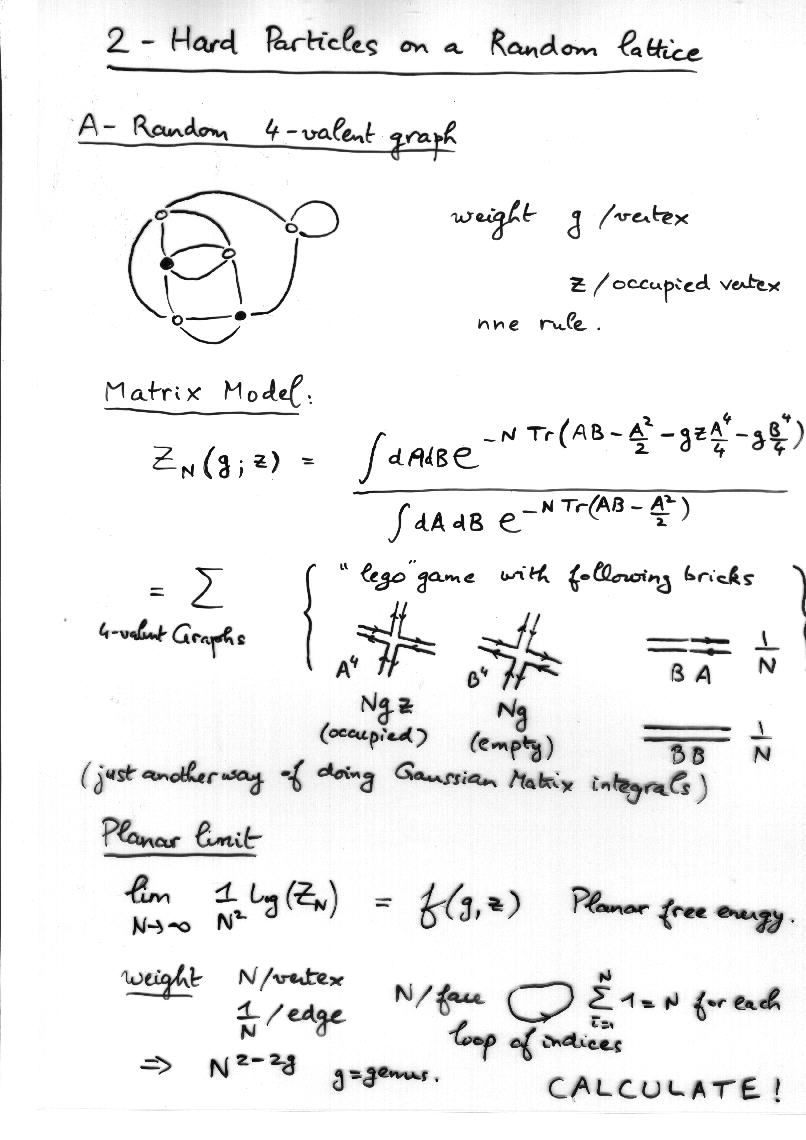 2 - Hard Particles on a Random lattice
A - Random 4-valent graph
weight g /vertex
z /occupied vertex
nne rule.
Matrix Model:
Z_N(g; z) = ∫dAdB e^{-N Tr(AB - A²/2 - gz A⁴/4 - g B⁴/4)} / ∫dA dB e^{-N Tr(AB - A²/2)}
= Σ { "lego" game with following bricks }
4-valent Graphs
A⁴ B⁴ B A 1/N
Ngz Ng
(occupied) (empty) B B 1/N
(just another way of doing Gaussian Matrix integrals)
Planar limit
lim N→∞ 1/N² Log(Z_N) = f(g,z) Planar free energy.
weight N/vertex N/face Σ_{i=1}^{N} 1 = N for each
1/N /edge loop of indices
⇒ N^{2-2g} g=genus.
CALCULATE!